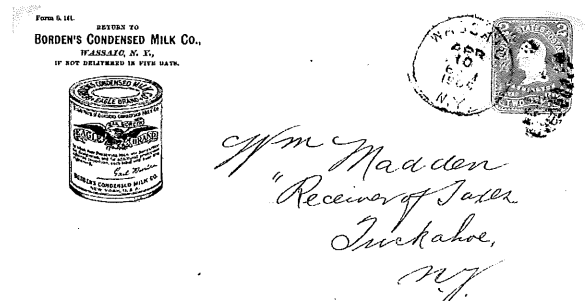 Form 6. 161.
RETURN TO
BORDEN'S CONDENSED MILK CO.,
WASSAIC, N. Y.,
IF NOT DELIVERED IN FIVE DAYS.
BORDEN'S CONDENSED MILK CO.
EAGLE BRAND
Gail Borden
BORDEN'S CONDENSED MILK CO.
NEW YORK, U.S.A.
WASSAIC
APR
10
N.Y.
Wm Madden
"Receiver of Taxes
Tuckahoe,
N.Y.